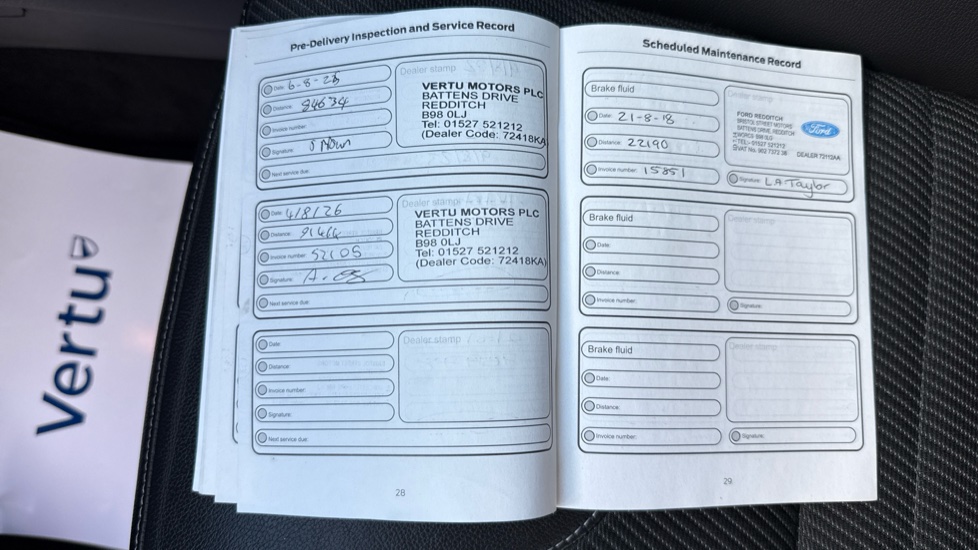 Vertu
Pre-Delivery Inspection and Service Record
Date: 6-8-25
Distance: 84634
Invoice number:
Signature:
Next service due:
Dealer stamp
VERTU MOTORS PLC
BATTENS DRIVE
REDDITCH
B98 0LJ
Tel: 01527 521212
(Dealer Code: 72418KA)
Date: 4/8/26
Distance:
Invoice number: 52105
Signature: A.
Next service due:
Dealer stamp
VERTU MOTORS PLC
BATTENS DRIVE
REDDITCH
B98 0LJ
Tel: 01527 521212
(Dealer Code: 72418KA)
Date:
Distance:
Invoice number:
Signature:
Next service due:
Dealer stamp
28
Scheduled Maintenance Record
Brake fluid
Date: 21-8-18
Distance: 22190
Invoice number: 15851
Dealer stamp
FORD REDDITCH
BRISTOL STREET MOTORS
BATTENS DRIVE, REDDITCH
TEL: 01527 521212
DEALER 72112AA
Ford
Signature: L.A.Taylor
Brake fluid
Date:
Distance:
Invoice number:
Dealer stamp
Signature:
Brake fluid
Date:
Distance:
Invoice number:
Dealer stamp
Signature:
29